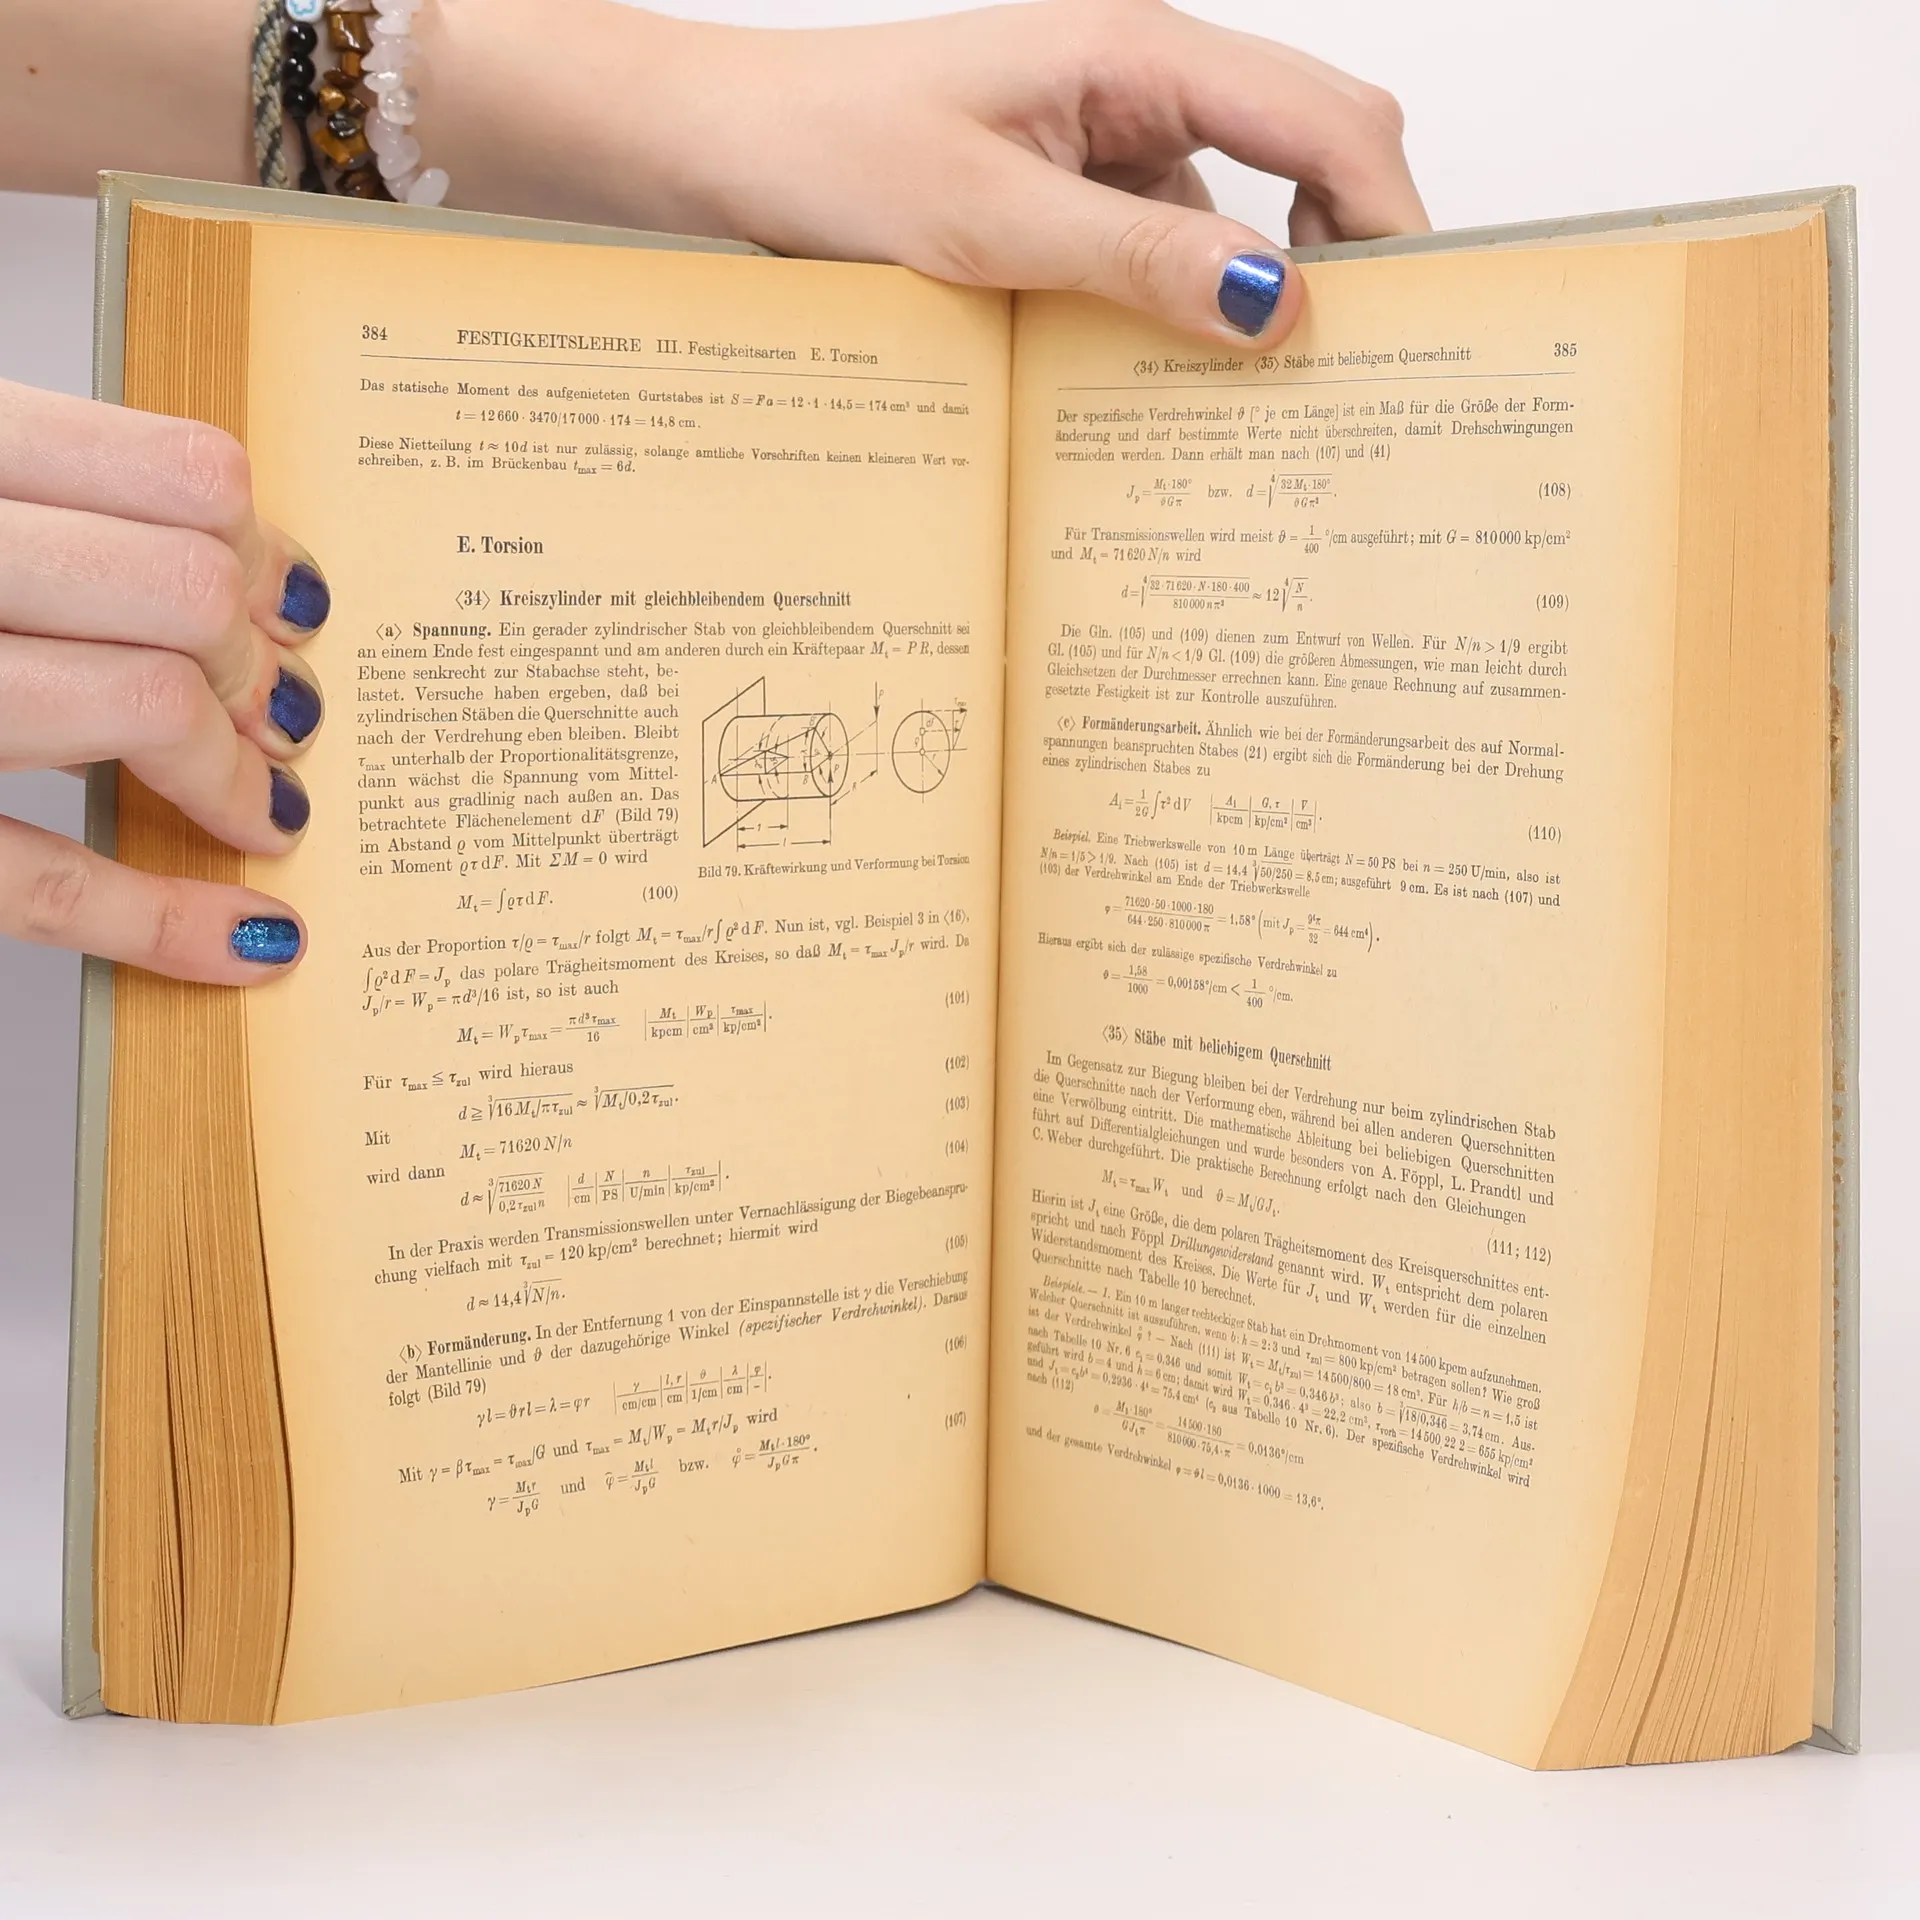 384 FESTIGKEITSLEHRE III. Festigkeitsarten E. Torsion
Das statische Moment des aufgenieteten Gurtstabes ist S = Fa = 12 · 1 · 14,5 = 174 cm³ und damit
t = 12 660 · 3470/17 000 · 174 = 14,8 cm.
Diese Nietteilung t ≈ 10d ist nur zulässig, solange amtliche Vorschriften keinen kleineren Wert vor-
schreiben, z. B. im Brückenbau tmax = 6d.
E. Torsion
⟨34⟩ Kreiszylinder mit gleichbleibendem Querschnitt
⟨a⟩ Spannung. Ein gerader zylindrischer Stab von gleichbleibendem Querschnitt sei
an einem Ende fest eingespannt und am anderen durch ein Kräftepaar Mt = P R, dessen
Ebene senkrecht zur Stabachse steht, be-
lastet. Versuche haben ergeben, daß bei
zylindrischen Stäben die Querschnitte auch
nach der Verdrehung eben bleiben. Bleibt
τmax unterhalb der Proportionalitätsgrenze,
dann wächst die Spannung vom Mittel-
punkt aus gradlinig nach außen an. Das
betrachtete Flächenelement dF (Bild 79)
im Abstand ϱ vom Mittelpunkt überträgt
ein Moment ϱτdF. Mit ΣM = 0 wird
Bild 79. Kräftewirkung und Verformung bei Torsion
Mt = ∫ϱτdF. (100)
Aus der Proportion τ/ϱ = τmax/r folgt Mt = τmax/r∫ϱ²dF. Nun ist, vgl. Beispiel 3 in ⟨16⟩,
∫ϱ²dF = Jp das polare Trägheitsmoment des Kreises, so daß Mt = τmax Jp/r wird. Da
Jp/r = Wp = πd³/16 ist, so ist auch
Mt = Wpτmax = πd³τmax/16 | Mt/kpcm | Wp/cm³ | τmax/kp/cm² |. (101)
Für τmax ≦ τzul wird hieraus
d ≧ ∛(16Mt/πτzul) ≈ ∛(Mt/0,2τzul). (102)
Mit
Mt = 71620 N/n (103)
wird dann
d ≈ ∛(71620 N/0,2τzul n) | d/cm | N/PS | n/U/min | τzul/kp/cm² |. (104)
In der Praxis werden Transmissionswellen unter Vernachlässigung der Biegebeanspru-
chung vielfach mit τzul = 120 kp/cm² berechnet; hiermit wird
d ≈ 14,4∛N/n. (105)
⟨b⟩ Formänderung. In der Entfernung 1 von der Einspannstelle ist γ die Verschiebung
der Mantellinie und ϑ der dazugehörige Winkel (spezifischer Verdrehwinkel). Daraus
folgt (Bild 79)
γl = ϑrl = λ = φr | γ/cm/cm | l, r/cm | ϑ/1/cm | λ/cm | φ/– |. (106)
Mit γ = βτmax = τmax/G und τmax = Mt/Wp = Mtr/Jp wird
γ = Mtr/JpG und φ̂ = Mtl/JpG bzw. φ° = Mtl·180°/JpGπ. (107)
⟨34⟩ Kreiszylinder ⟨35⟩ Stäbe mit beliebigem Querschnitt 385
Der spezifische Verdrehwinkel ϑ [° je cm Länge] ist ein Maß für die Größe der Form-
änderung und darf bestimmte Werte nicht überschreiten, damit Drehschwingungen
vermieden werden. Dann erhält man nach (107) und (41)
Jp = Mt·180°/ϑGπ bzw. d = ∜(32Mt·180°/ϑGπ²). (108)
Für Transmissionswellen wird meist ϑ = 1/400 °/cm ausgeführt; mit G = 810 000 kp/cm²
und Mt = 71 620 N/n wird
d = ∜(32·71 620·N·180·400/810 000 nπ²) ≈ 12∜(N/n). (109)
Die Gln. (105) und (109) dienen zum Entwurf von Wellen. Für N/n > 1/9 ergibt
Gl. (105) und für N/n < 1/9 Gl. (109) die größeren Abmessungen, wie man leicht durch
Gleichsetzen der Durchmesser errechnen kann. Eine genaue Rechnung auf zusammen-
gesetzte Festigkeit ist zur Kontrolle auszuführen.
⟨c⟩ Formänderungsarbeit. Ähnlich wie bei der Formänderungsarbeit des auf Normal-
spannungen beanspruchten Stabes (21) ergibt sich die Formänderung bei der Drehung
eines zylindrischen Stabes zu
Ai = 1/2G ∫τ²dV | Ai/kpcm | G, τ/kp/cm² | V/cm³ |. (110)
Beispiel. Eine Triebwerkswelle von 10 m Länge überträgt N = 50 PS bei n = 250 U/min, also ist
N/n = 1/5 > 1/9. Nach (105) ist d = 14,4 ∛50/250 = 8,5 cm; ausgeführt 9 cm. Es ist nach (107) und
(103) der Verdrehwinkel am Ende der Triebwerkswelle
φ = 71620·50·1000·180/644·250·810000π = 1,58° (mit Jp = 9⁴π/32 = 644 cm⁴).
Hieraus ergibt sich der zulässige spezifische Verdrehwinkel zu
ϑ = 1,58/1000 = 0,00158°/cm < 1/400 °/cm.
⟨35⟩ Stäbe mit beliebigem Querschnitt
Im Gegensatz zur Biegung bleiben bei der Verdrehung nur beim zylindrischen Stab
die Querschnitte nach der Verformung eben, während bei allen anderen Querschnitten
eine Verwölbung eintritt. Die mathematische Ableitung bei beliebigen Querschnitten
führt auf Differentialgleichungen und wurde besonders von A. Föppl, L. Prandtl und
C. Weber durchgeführt. Die praktische Berechnung erfolgt nach den Gleichungen
Mt = τmax Wt und ϑ = Mt/GJt. (111; 112)
Hierin ist Jt eine Größe, die dem polaren Trägheitsmoment des Kreisquerschnittes ent-
spricht und nach Föppl Drillungswiderstand genannt wird. Wt entspricht dem polaren
Widerstandsmoment des Kreises. Die Werte für Jt und Wt werden für die einzelnen
Querschnitte nach Tabelle 10 berechnet.
Beispiele. — 1. Ein 10 m langer rechteckiger Stab hat ein Drehmoment von 14 500 kpcm aufzunehmen.
Welcher Querschnitt ist auszuführen, wenn b : h = 2 : 3 und τzul = 800 kp/cm² betragen sollen? Wie groß
ist der Verdrehwinkel φ°? — Nach (111) ist Wt = Mt/τzul = 14 500/800 = 18 cm³. Für h/b = n = 1,5 ist
nach Tabelle 10 Nr. 6 c₁ = 0,346 und somit Wt = c₁ b³ = 0,346 b³; also b = ∛18/0,346 = 3,74 cm. Aus-
geführt wird b = 4 und h = 6 cm; damit wird Wt = 0,346 · 4³ = 22,2 cm³, τvorh = 14 500/22,2 = 655 kp/cm²
und Jt = c₂b⁴ = 0,2936 · 4⁴ = 75,4 cm⁴ (c₂ aus Tabelle 10 Nr. 6). Der spezifische Verdrehwinkel wird
nach (112)
ϑ = Mt·180°/GJtπ = 14 500·180/810 000·75,4·π = 0,0136°/cm
und der gesamte Verdrehwinkel φ = ϑl = 0,0136 · 1000 = 13,6°.